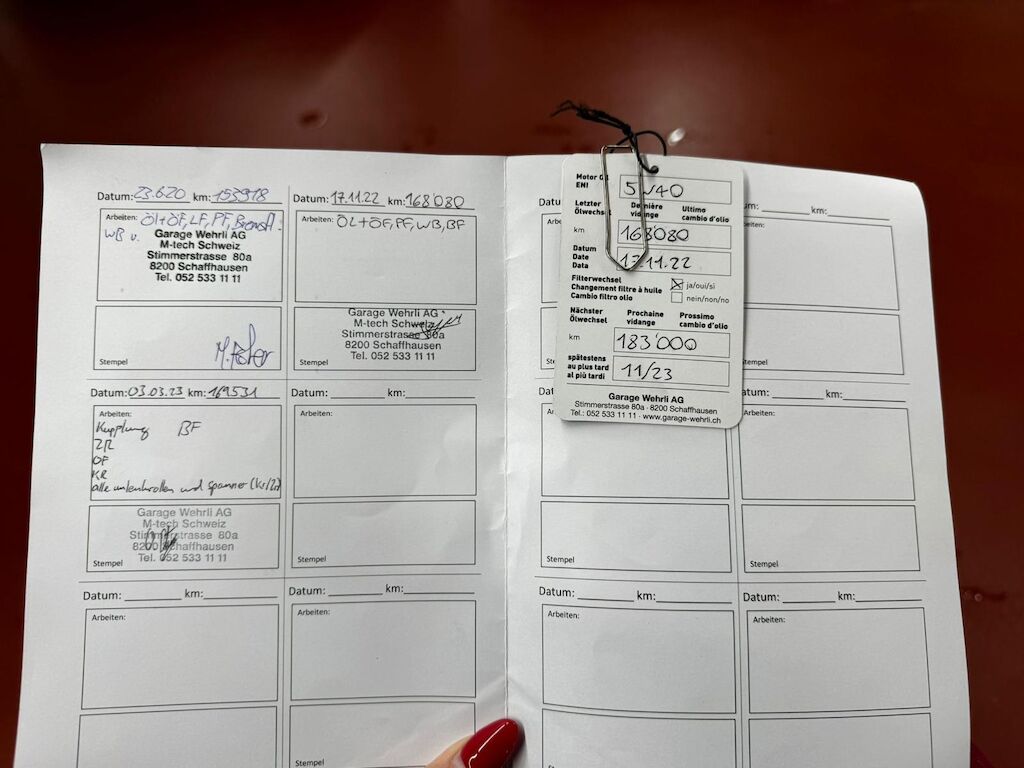 Datum: 23.6.20 km: 153918
Arbeiten: Öl+ÖF, LF, PF, Bremsfl.
WB v.
Garage Wehrli AG
M-tech Schweiz
Stimmerstrasse 80a
8200 Schaffhausen
Tel. 052 533 11 11
Stempel
Datum: 17.11.22 km: 168'080
Arbeiten: ÖL+ÖF, PF, WB, BF
Garage Wehrli AG
M-tech Schweiz
Stimmerstrasse 80a
8200 Schaffhausen
Tel. 052 533 11 11
Stempel
Datum: 03.03.23 km: 169531
Arbeiten:
Kupplung BF
ZR
OF
KR
alle umlenkrollen und spanner (Kr/Zr)
Garage Wehrli AG
M-tech Schweiz
Stimmerstrasse 80a
8200 Schaffhausen
Tel. 052 533 11 11
Stempel
Datum: km:
Arbeiten:
Stempel
Datum: km:
Arbeiten:
Datum: km:
Arbeiten:
Stempel
Motor
ENI
5W40
Letzter Dernière Ultimo
Ölwechsel vidange cambio d'olio
km 168'080
Datum
Date
Data
17.11.22
Filterwechsel
Changement filtre à huile
Cambio filtro olio
ja/oui/si
nein/non/no
Nächster Prochaine Prossimo
Ölwechsel vidange cambio d'olio
km 183'000
spätestens
au plus tard
al più tardi
11/23
Garage Wehrli AG
Stimmerstrasse 80a · 8200 Schaffhausen
Tel.: 052 533 11 11 · www.garage-wehrli.ch
km:
Stempel
km:
Arbeiten:
Stempel
Datum: km:
Arbeiten:
Datum: km:
Arbeiten: